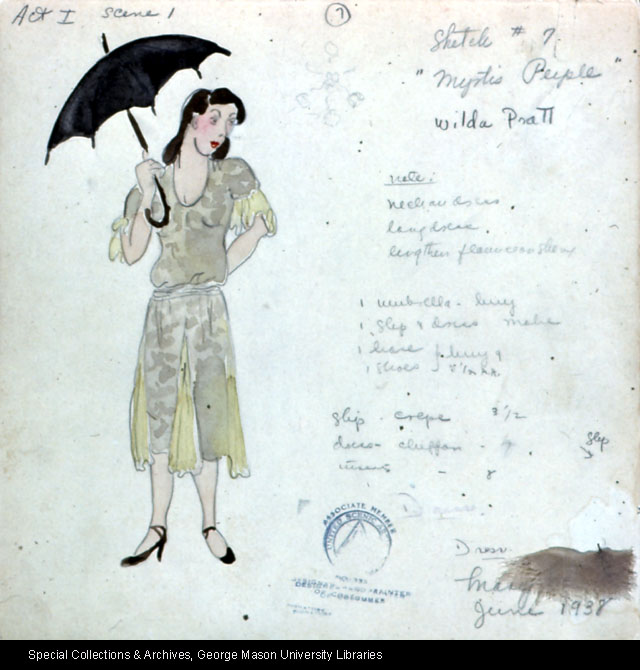 Act I scene 1
7
Sketch # 7
"Myrtis Peeple"
Wilda Pratt
note:
neck on dress.
long dress.
lengthen flounce on sleeve
1 umbrella - buy
1 slip & dress make
1 hose } buy
1 shoes
slip - crepe 3 1/2
dress - chiffon -
slip
ASSOCIATE MEMBER
UNITED SCENIC
Dress
June 1938
Special Collections & Archives, George Mason University Libraries